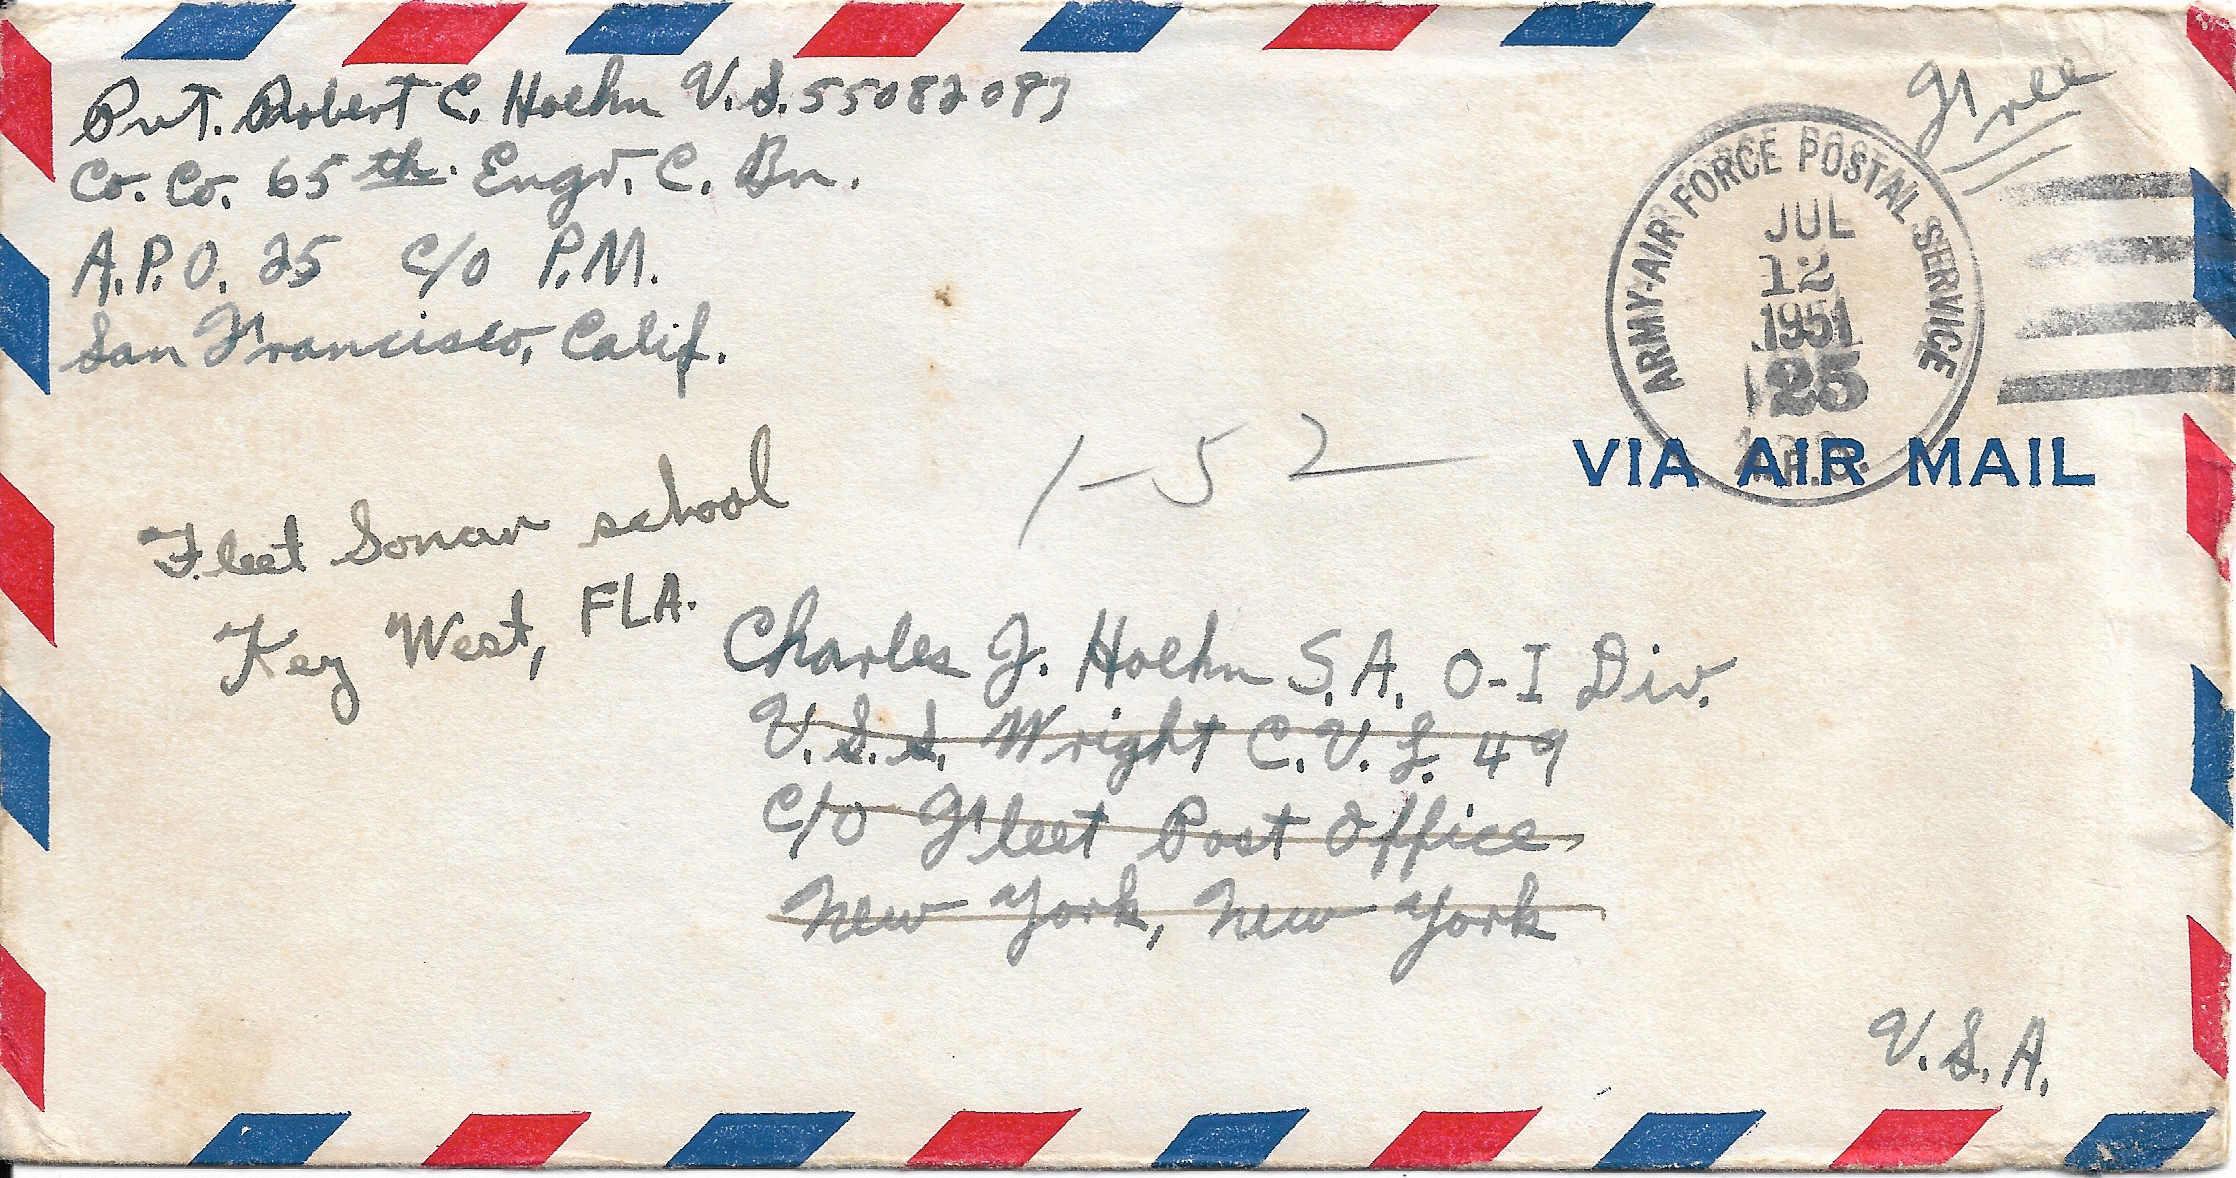 Pvt. Robert C. Hoehn U.S. 55082083
Co. Co. 65th. Engr. C. Bn.
A.P.O. 25 c/o P.M.
San Francisco, Calif.
Free
ARMY-AIR FORCE POSTAL SERVICE
JUL
12
1951
25
A.P.O.
VIA AIR MAIL
1-52
Fleet Sonar school
Key West, FLA.
Charles J. Hoehn S.A. O-I Div.
U.S.S. Wright C.V.L. 49
c/o Fleet Post Office
New York, New York
U.S.A.